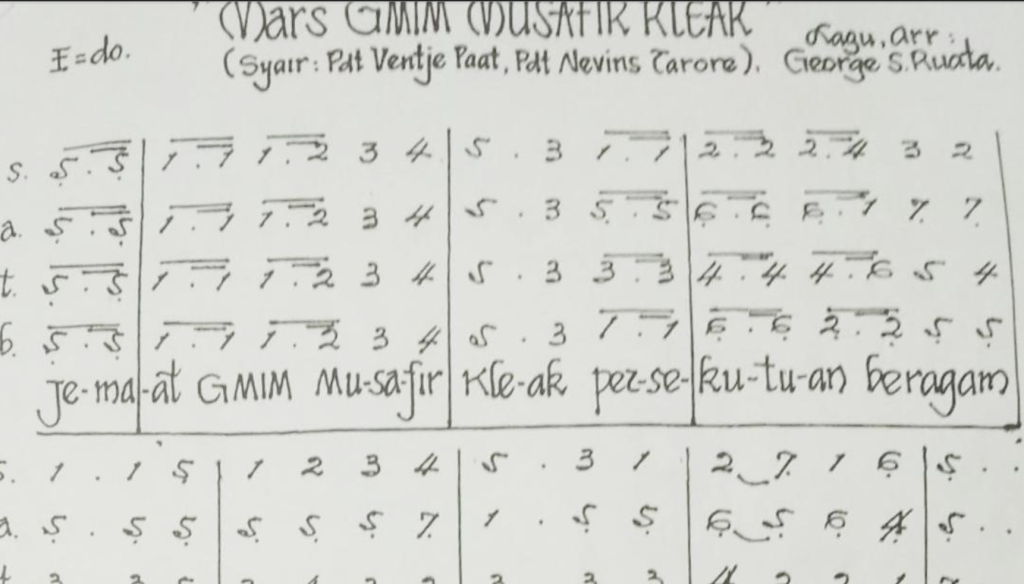 "Mars GMIM MUSAFIR KLEAK"
E=do. (Syair: Pdt Ventje Paat, Pdt Nevins Tarore). Lagu, arr:
George S. Ruata.
s. 5 . 5 | 1 . 1 1 . 2 3 4 | 5 . 3 1 . 1 | 2 . 2 2 . 4 3 2 |
a. 5 . 5 | 1 . 1 1 . 2 3 4 | 5 . 3 5 . 5 | 6 . 6 6 . 1 7 7 |
t. 5 . 5 | 1 . 1 1 . 2 3 4 | 5 . 3 3 . 3 | 4 . 4 4 . 6 5 4 |
b. 5 . 5 | 1 . 1 1 . 2 3 4 | 5 . 3 1 . 1 | 6 . 6 2 . 2 5 5 |
Je-ma-at GMIM Mu-sa-fir Kle-ak per-se-ku-tu-an beragam
s. 1 . 1 5 | 1 2 3 4 | 5 . 3 1 | 2 7 1 6 | 5 . .
a. 5 . 5 5 | 5 5 5 7 | 1 . 5 5 | 6 5 6 4 | 5 . .